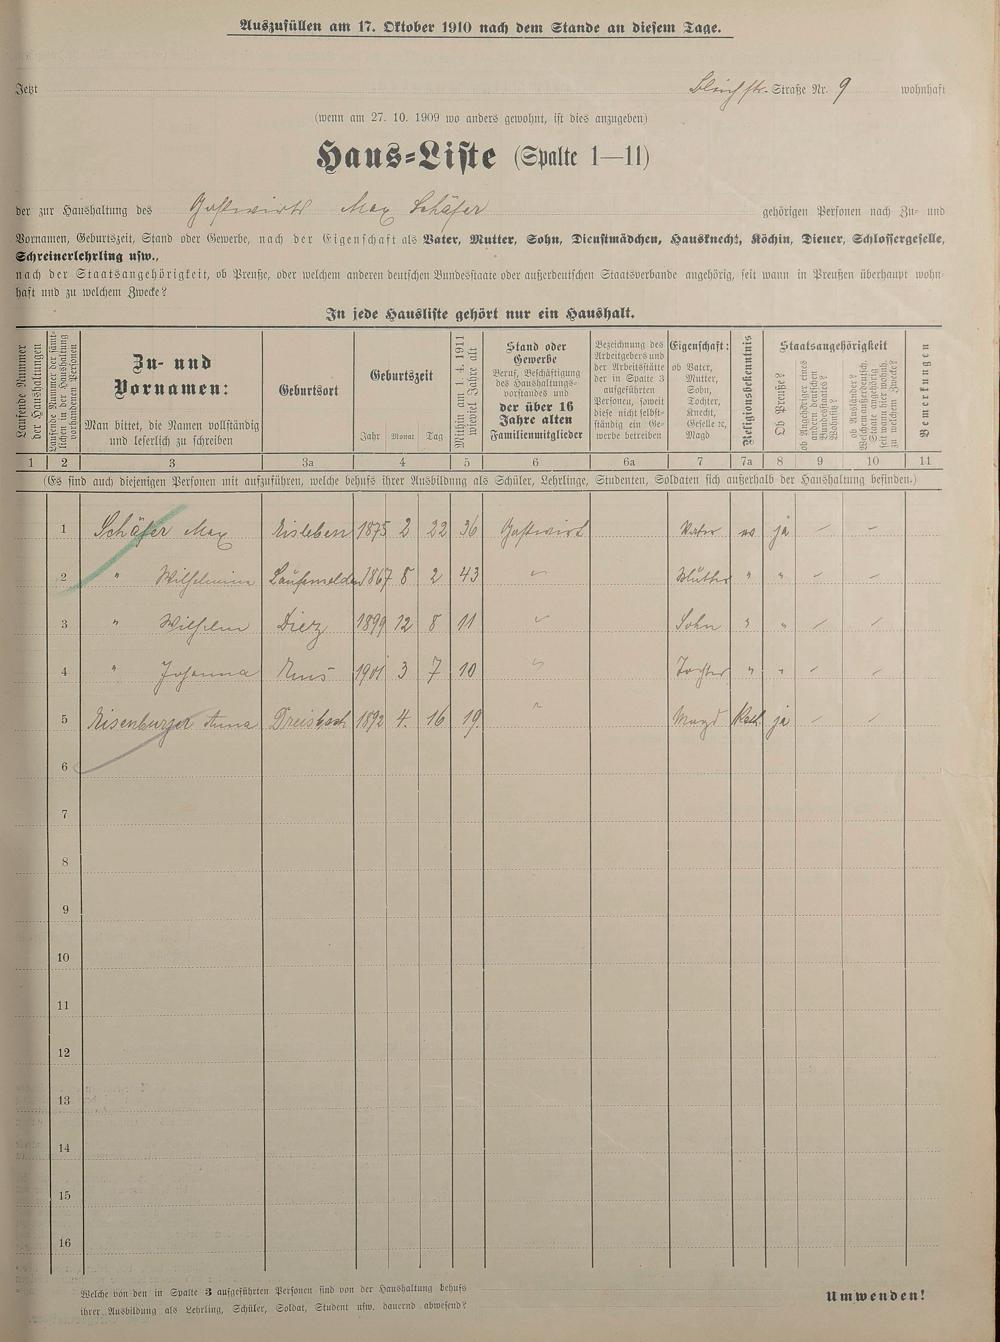 Auszufüllen am 17. Oktober 1910 nach dem Stande an diesem Tage.
Jetzt Bleichstr. Straße Nr. 9 wohnhaft
(wenn am 27. 10. 1909 wo anders gewohnt, ist dies anzugeben)
Haus-Liste (Spalte 1—11)
der zur Haushaltung des Gastwirts Max Schäfer gehörigen Personen nach Zu- und
Vornamen, Geburtszeit, Stand oder Gewerbe, nach der Eigenschaft als Vater, Mutter, Sohn, Dienstmädchen, Hausknecht, Köchin, Diener, Schlossergeselle,
Schreinerlehrling usw.,
nach der Staatsangehörigkeit, ob Preuße, oder welchem anderen deutschen Bundesstaate oder außerdeutschen Staatsverbande angehörig, seit wann in Preußen überhaupt wohn-
haft und zu welchem Zwecke?
In jede Hausliste gehört nur ein Haushalt.
Laufende Nummer der Haushaltungen
Laufende Nummer der sämt-
lichen in der Haushaltung
vorhandenen Personen
Zu- und
Vornamen:
Man bittet, die Namen vollständig
und leserlich zu schreiben
Geburtsort
Geburtszeit
Jahr Monat Tag
Mithin am 1. 4. 1911
wieviel Jahre alt
Stand oder
Gewerbe
Beruf, Beschäftigung
des Haushaltungs-
vorstandes und
der über 16
Jahre alten
Familienmitglieder
Bezeichnung des
Arbeitgebers und
der Arbeitsstätte
der in Spalte 3
aufgeführten
Personen, soweit
diese nicht selbst-
ständig ein Ge-
werbe betreiben
Eigenschaft:
ob Vater,
Mutter,
Sohn,
Tochter,
Knecht,
Geselle ꝛc,
Magd
Religionsbekenntnis
Staatsangehörigkeit
Ob Preuße?
ob Angehöriger eines
andern deutschen
Bundesstaates?
Wohnsitz?
ob Ausländer?
Welchem außerdeutsch.
Staate angehörig
seit wann hier wohnh.
zu welchem Zwecke?
Bemerkungen
1 2 3 3a 4 5 6 6a 7 7a 8 9 10 11
(Es sind auch diejenigen Personen mit aufzuführen, welche behufs ihrer Ausbildung als Schüler, Lehrlinge, Studenten, Soldaten sich außerhalb der Haushaltung befinden.)
1 Schäfer Max Eisleben 1875 2 22 36 Gastwirt Vater ev ja – –
2 " Wilhelmine Laufenselden 1867 8 2 43 " Mutter " " – –
3 " Wilhelm Diez 1899 12 8 11 " Sohn " " – –
4 " Johanna Ems 1901 3 7 10 " Tochter " " – –
5 Eisenburger Anna Dreisbach 1892 4. 16 19 " Magd Kath. ja – –
6
7
8
9
10
11
12
13
14
15
16
Welche von den in Spalte 3 aufgeführten Personen sind von der Haushaltung behufs
ihrer Ausbildung als Lehrling, Schüler, Soldat, Student usw. dauernd abwesend?
Umwenden!